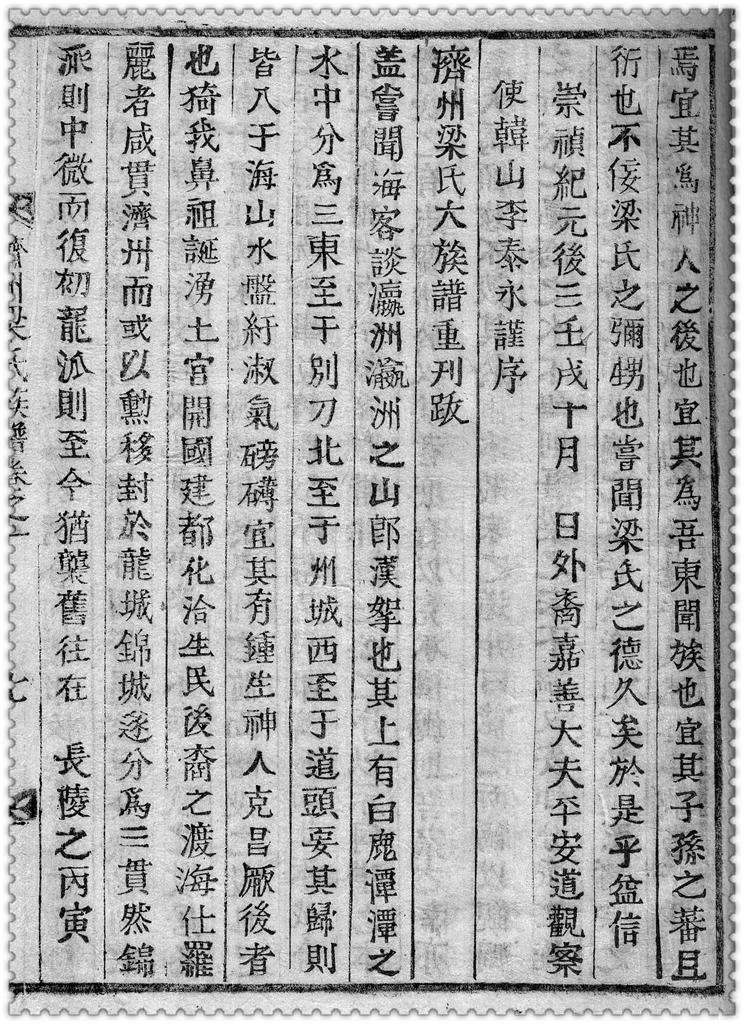 焉宜其爲神人之後也宜其為吾東聞族也宜其子孫之蕃且
衍也不侫梁氏之彌甥也嘗聞梁氏之德久矣於是乎益信
崇禎紀元後三壬戌十月 日外裔嘉善大夫平安道觀察
使韓山李泰永謹序
濟州梁氏大族譜重刊跋
盖嘗聞海客談瀛洲瀛洲之山卽漢挐也其上有白鹿潭潭之
水中分爲三東至于別刀北至于州城西至于道頭要其歸則
皆入于海山水盤紆淑氣磅礴宜其有鍾生神人克昌厥後者
也猗我鼻祖誕湧土宮開國建都化洽生民後裔之渡海仕羅
麗者咸貫濟州而或以勳移封於龍城錦城遂分爲三貫然錦
派則中微而復初龍派則至今猶襲舊往在 長陵之丙寅
濟州梁氏族譜卷之
七